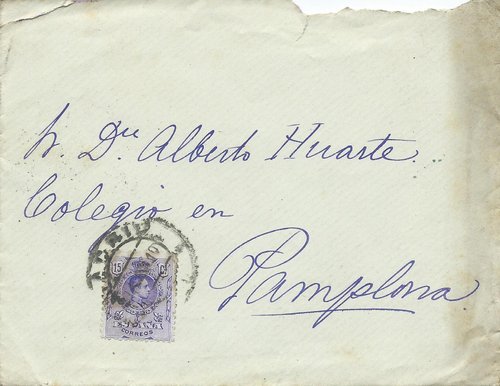 Sr. Dn Alberto Huarte
Colegio en
Pamplona
ADRID
15 Cs
ESPAÑA
CORREOS